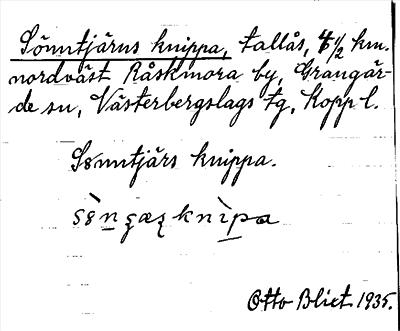 Sönntjärns knippa, tallås, 4 1/2 km.
nordväst Råskmora by, Grangär-
de sn, Västerbergslags tg, Kopp l.
knippa.
Otto Blixt 1935.